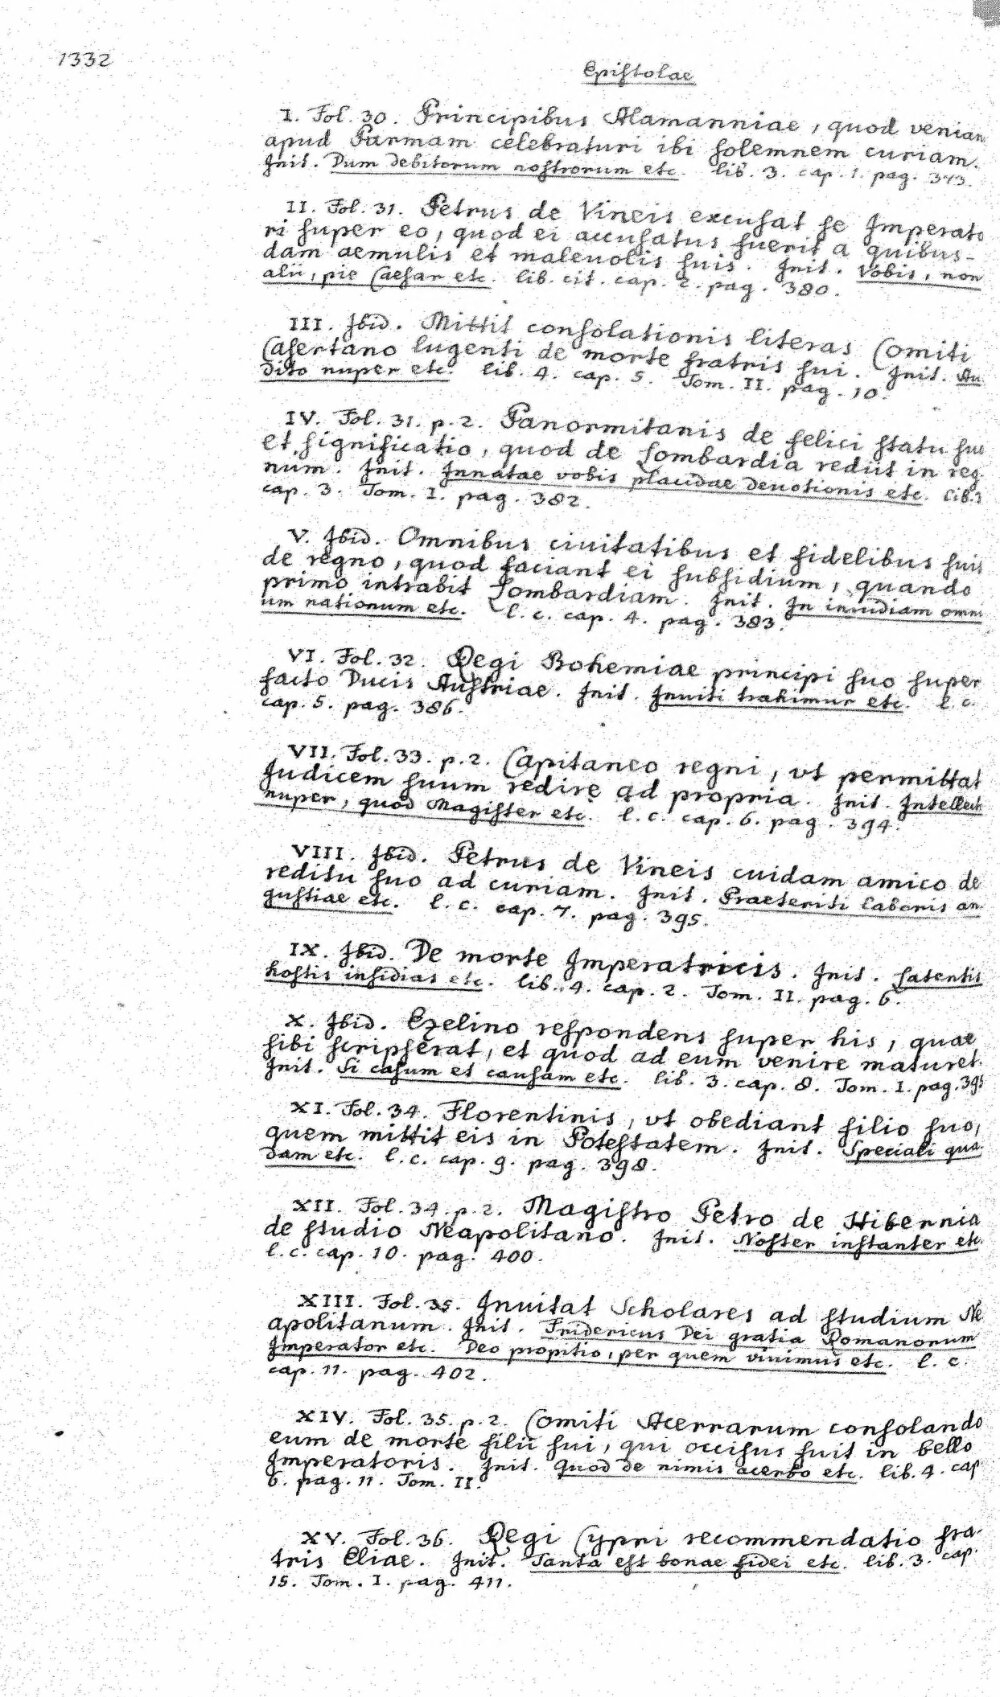 1332
Epistolae
I. Fol. 30. Principibus Alamanniae, quod veniam
apud Parmam celebraturi ibi solemnem curiam.
Init. Dum debitorum nostrorum etc. lib. 3. cap. 1. pag. 373.
II. Fol. 31. Petrus de Vineis excusat se Imperato
ri super eo, quod ei accusatus fuerit a quibus-
dam aemulis et malevolis suis. Init. Vobis, non
alii, pie Caesar etc. lib. cit. cap. 2. pag. 380.
III. Ibid. Mittit consolationis literas Comiti
Casertano lugenti de morte fratris sui. Init. Au
dito nuper etc. lib. 4. cap. 5. Tom. II. pag. 10.
IV. Fol. 31. p. 2. Panormitanis de felici statu suo
et significatio, quod de Lombardia rediit in reg
num. Init. Innatae vobis placidae deuotionis etc. lib. 3
cap. 3. Tom. I. pag. 382.
V. Ibid. Omnibus ciuitatibus et fidelibus suis
de regno, quod faciant ei subsidium, quando
primo intrabit Lombardiam. Init. In inuidiam omni
um nationum etc. l. c. cap. 4. pag. 383.
VI. Fol. 32. Regi Bohemiae principi suo super
facto Ducis Austriae. Init. Inuiti trahimur etc. l. c.
cap. 5. pag. 386.
VII. Fol. 33. p. 2. Capitaneo regni, vt permittat
Iudicem suum redire ad propria. Init. Intellecto
nuper, quod Magister etc. l. c. cap. 6. pag. 394.
VIII. Ibid. Petrus de Vineis cuidam amico de
reditu suo ad curiam. Init. Praeteriti laboris an
gustiae etc. l. c. cap. 7. pag. 395.
IX. Ibid. De morte Imperatricis. Init. Latentis
hostis insidias etc. lib. 4. cap. 2. Tom. II. pag. 6.
X. Ibid. Ezelino respondens super his, quae
sibi scripserat, et quod ad eum venire maturet.
Init. Si casum et causam etc. lib. 3. cap. 8. Tom. I. pag. 395
XI. Fol. 34. Florentinis, vt obediant filio suo,
quem mittit eis in Potestatem. Init. Speciali qua
dam etc. l. c. cap. 9. pag. 398.
XII. Fol. 34. p. 2. Magistro Petro de Hibernia
de studio Neapolitano. Init. Noster instanter etc.
l. c. cap. 10. pag. 400.
XIII. Fol. 35. Inuitat Scholares ad studium Ne
apolitanum. Init. Fridericus Dei gratia Romanorum
Imperator etc. Deo propitio, per quem viuimus etc. l. c.
cap. 11. pag. 402.
XIV. Fol. 35. p. 2. Comiti Acerrarum consolando
eum de morte filii sui, qui occisus fuit in bello
Imperatoris. Init. Quod de nimis acerbo etc. lib. 4. cap
6. pag. 11. Tom. II.
XV. Fol. 36. Regi Cypri recommendatio fra-
tris Eliae. Init. Tanta est bonae fidei etc. lib. 3. cap.
15. Tom. I. pag. 411.